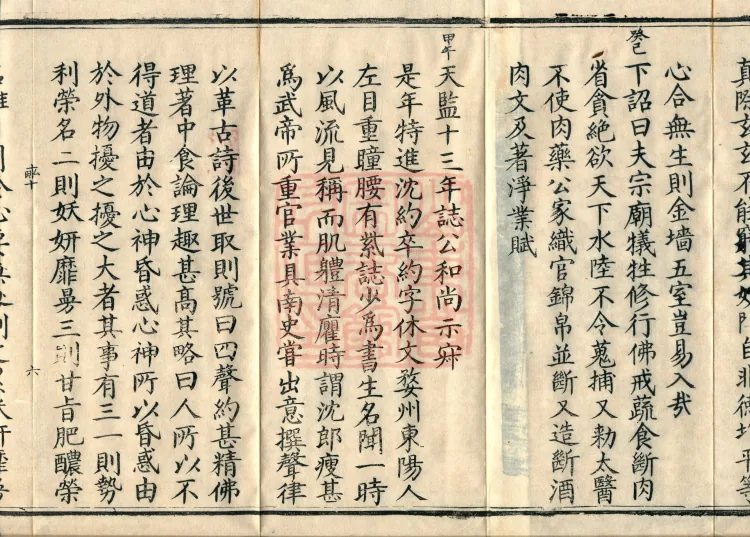 真際玄玄不能窮其妙門自非德均平等
心合無生則金墻五室豈易入哉
癸巳
下詔曰夫宗廟犧牲修行佛戒蔬食斷肉
省貪絶欲天下水陸不令蒐捕又勑太醫
不使肉藥公家織官錦帛並斷又造斷酒
肉文及著淨業賦
甲午
天監十三年誌公和尚示寂
是年特進沈約卒約字休文婺州東陽人
左目重瞳腰有紫誌少爲書生名聞一時
以風流見稱而肌軆清癯時謂沈郎瘦甚
爲武帝所重官業具南史嘗出意撰聲律
以革古詩後世取則號曰四聲約甚精佛
理著中食論理趣甚高其略曰人所以不
得道者由於心神昏惑心神所以昏惑由
於外物擾之擾之大者其事有三一則勢
利榮名二則妖妍靡曼三則甘旨肥醲榮
六